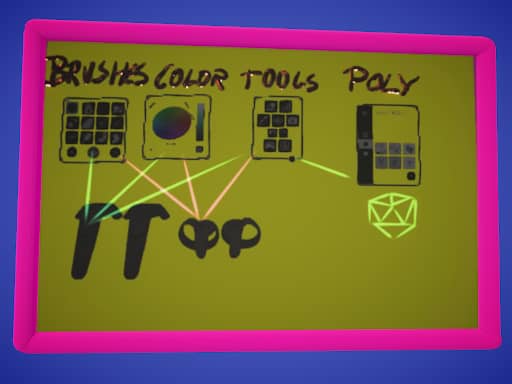 BRUSHES COLOR TOOLS POLY